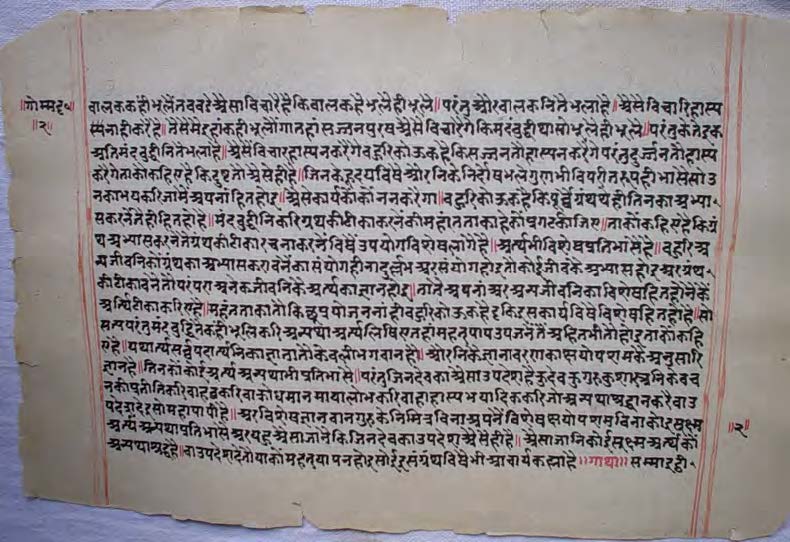 ॥गोम्मट०॥
॥२॥
बालक कहीं भूलैं तब बडे अैसा विचारै है कि बालक है भूलै ही भूलै॥ परंतु और बालकनितैं भला है॥ अैसैं विचारि हास्य
रूप नाही करै है॥ तैसैं मैं इहां कहीं भूलोंगा तहां सज्जन पुरुष अैसैं विचारैंगे कि मंदबुद्धी था सो भूलै ही भूलै॥ परंतु केतेइक
अतिमंदबुद्धीनितैं भला है॥ अैसैं विचारि हास्य न करैंगे बहुरि कोऊ कहै कि सज्जन तौ हास्य न करैंगे परंतु दुर्जन तौ हास्य
करैंगे ताकों कहिए है कि दुष्ट तौ अैसे ही हैं॥ जिनके हृदय विषैं औरनिके निर्दोष भलेगुण भी विपरीतरूप ही भासैं सो उ
नका भय करि जामैं अपनां हित होइ॥ अैसे कार्यकों कोंन न करैगा॥ बहुरि कोऊ कहै कि पूर्व ग्रंथ थे ही तिनका अभ्या॰
स करनेंतैं ही हित हो है॥ मंदबुद्धीनिकरि ग्रंथकी टीका करनेंकी महंतता काहेकों प्रगट कीजिए॥ ताकों कहिए है कि ग्रं
थ अभ्यास करनेंतैं ग्रंथकी टीका रचना करनें विषैं उपयोग विशेष लागै है॥ अर्थ भी विशेष प्रतिभासै है॥ बहुरि अ
न्य जीवनिको ग्रंथका अभ्यास करावनेंका संयोग होना दुर्लभ अर संयोग होइ तौ कोई जीवकै अभ्यास होइ अर ग्रंथ॰
की टीका बनें तौ परंपरा अनेक जीवनिकै अर्थका ज्ञान होइ॥ तातैं अपनां अर अन्य जीवनिका विशेष हित होनेंकै
अर्थि टीका करिए है॥ महंतताका तौ किछु प्रयोजन नांही बहुरि कोऊ कहै कि इस कार्य विषैं विशेष हित हो है॥ सो
सत्य परंतु मंदबुद्धितैं कहीं भूलि करि अन्यथा अर्थ लिखिए तहां महत्पाप उपजनेंतैं अहित भी तौ होइ ताकों कहि
ए है॥ यथार्थ सर्व पदार्थनिका ज्ञाता तौ केवली भगवान है॥ औरनिकै ज्ञानावरणका क्षयोपशमकै अनुसारि
ज्ञान है॥ तिनकों कोई अर्थ अन्यथा भी प्रतिभासै॥ परंतु जिनदेवका अैसा उपदेश है कुदेव कुगुरु कुशास्त्रनिके वच
नकी प्रतीतिकरि वा हठकरि वा क्रोध मान माया लोभकरि वा हास्य भयादिककरि जो अन्यथा श्रद्धान करै वा उ
पदेश देइ सो महापापी है॥ अर विशेष ज्ञानवान गुरुके निमित्त विना अपनें विशेष क्षयोपशम विना कोई सूक्ष्म
अर्थ अन्यथा प्रतिभासै अर यहु अैसा जानें कि जिनदेवका उपदेश अैसे ही है॥ अैसा जानि कोई सूक्ष्म अर्थकों
अन्यथा श्रद्दहै॥ वा उपदेश दे तौ याकों महत् पाप न होइ सोई इस ग्रंथ विषैं भी आचार्य कह्या है॥ ॥गाथा॥ सम्माइट्ठी॰
॥२॥